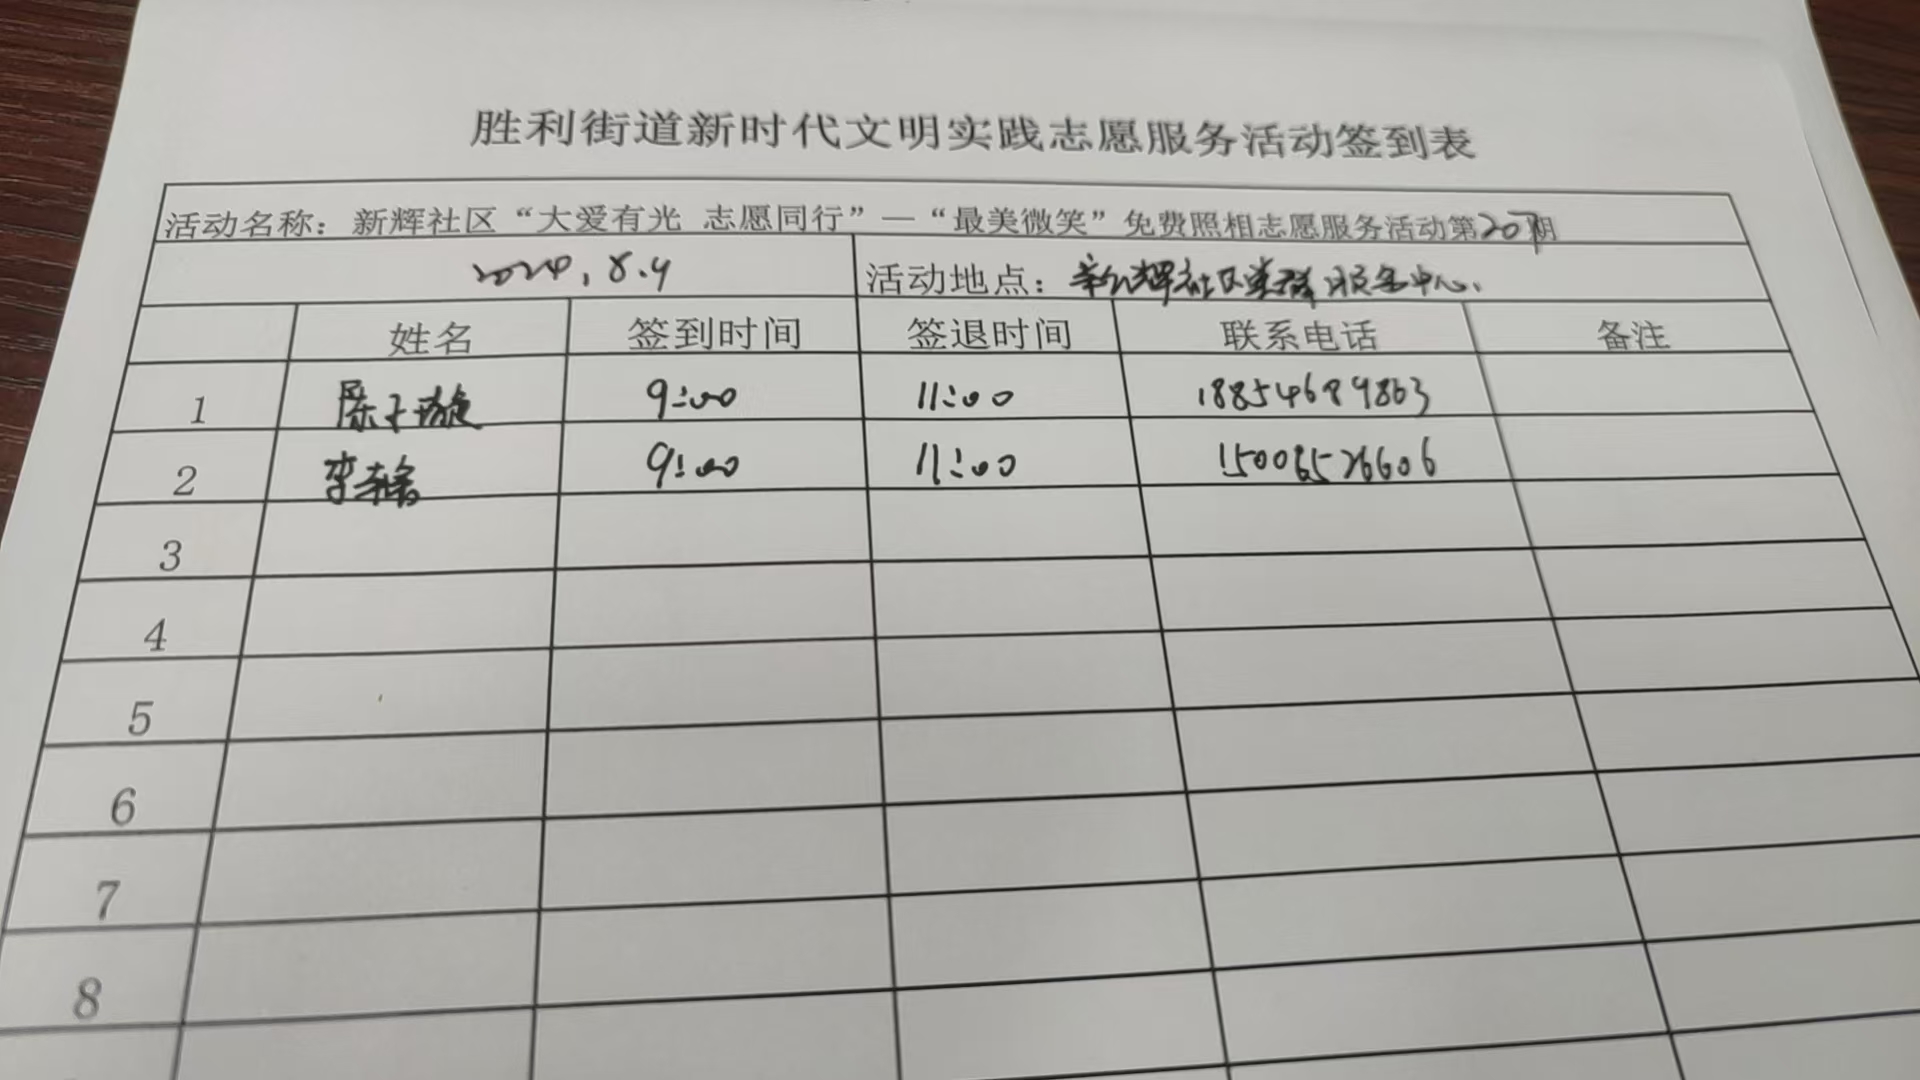 胜利街道新时代文明实践志愿服务活动签到表
活动名称：新辉社区“大爱有光 志愿同行”—“最美微笑”免费照相志愿服务活动第207期
2024.8.4 活动地点：新辉社区党群服务中心.
姓名 签到时间 签退时间 联系电话 备注
1 陈子璇 9:00 11:00 18854689863
2 李 9:00 11:00 15006526606
3
4
5
6
7
8